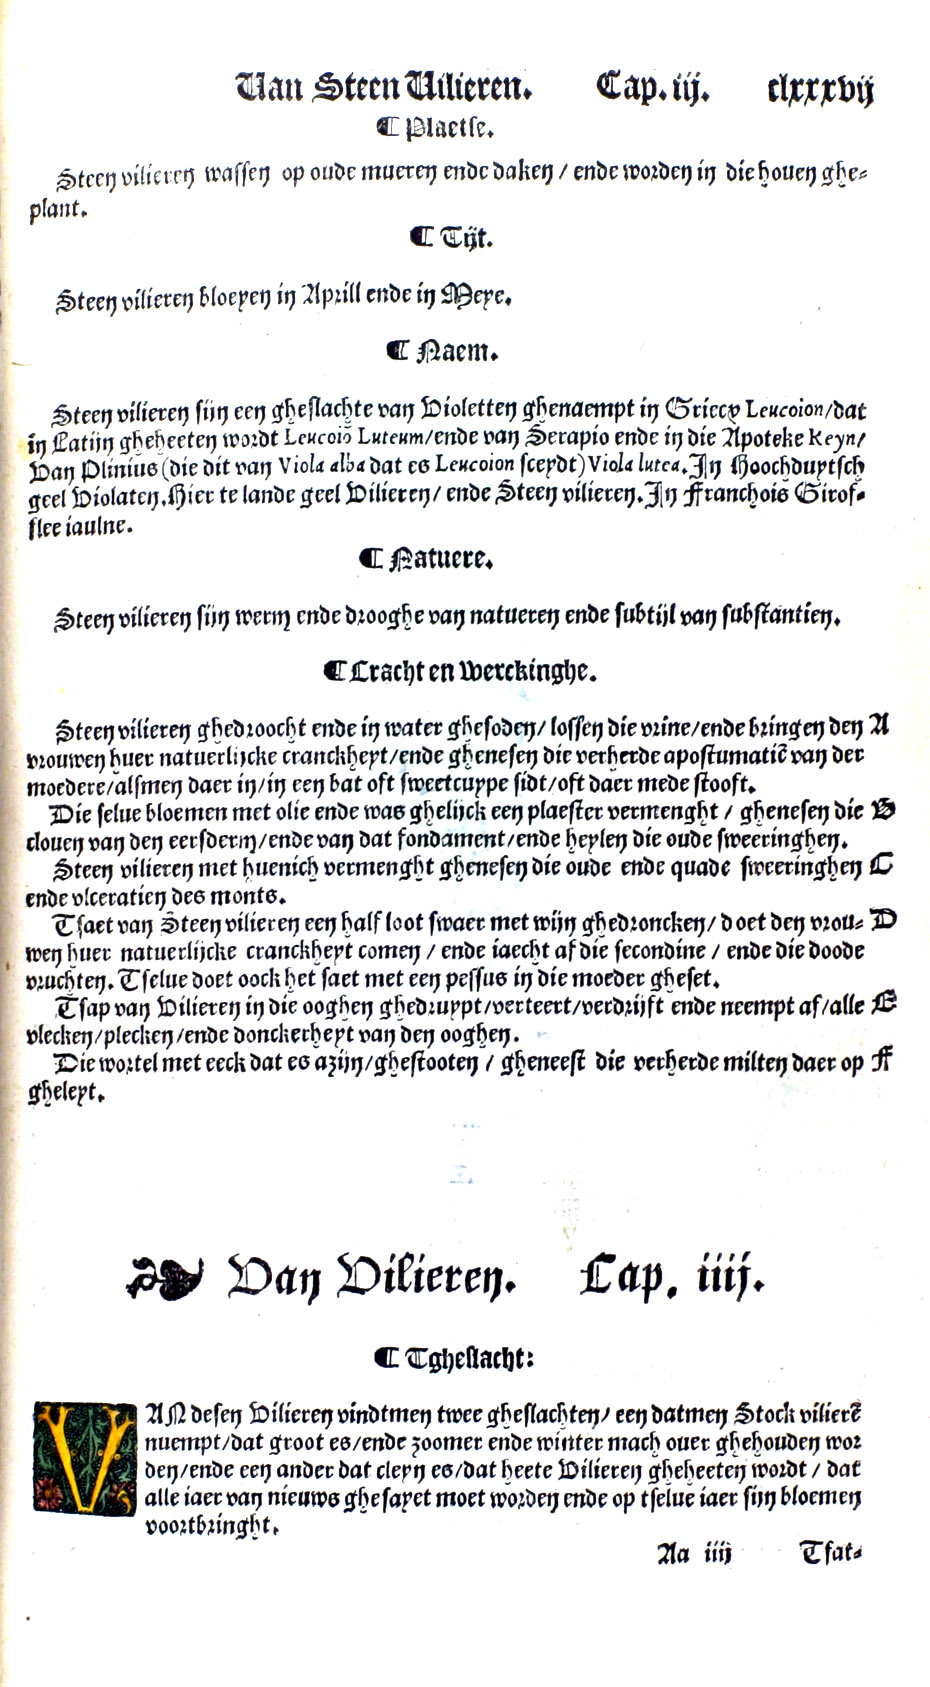 Van Steen Vilieren. Cap. iij. clxxxvij
¶ Plaetse.
Steen vilieren wassen op oude mueren ende daken / ende worden in die houen ghe⸗
plant.
¶ Tijt.
Steen vilieren bloeyen in Aprill ende in Meye.
¶ Naem.
Steen vilieren sijn een gheslachte van Violetten ghenaempt in Griecx Leucoion/dat
in Latijn gheheeten wordt Leucoiō Luteum/ende van Serapio ende in die Apoteke Keyn/
Van Plinius (die dit van Viola alba dat es Leucoion sceydt) Viola lutea. In Hoochduytsch
geel Violaten. Hier te lande geel Vilieren/ ende Steen vilieren. In Franchois Girof⸗
flee iaulne.
¶ Natuere.
Steen vilieren sijn werm ende drooghe van natueren ende subtijl van substantien.
¶ Cracht en werckinghe.
Steen vilieren ghedroocht ende in water ghesoden/ lossen die vrine/ende bringen den A
vrouwen huer natuerlijcke cranckheyt/ende ghenesen die verherde apostumatiē van der
moedere/alsmen daer in/in een bat oft sweetcuype sidt/oft daer mede stooft.
Die selue bloemen met olie ende was ghelijck een plaester vermenght / ghenesen die B
clouen van den eersderm/ende van dat fondament/ende heylen die oude sweeringhen.
Steen vilieren met huenich vermenght ghenesen die oude ende quade sweeringhen C
ende vlceratien des monts.
Tsaet van Steen vilieren een half loot swaer met wijn ghedroncken/ doet den vrou⸗ D
wen huer natuerlijcke cranckheyt comen / ende iaecht af die secondine / ende die doode
vruchten. Tselue doet oock het saet met een pessus in die moeder gheset.
Tsap van Vilieren in die ooghen ghedruypt/verteert/verdrijft ende neempt af/alle E
vlecken/plecken/ende donckerheyt van den ooghen.
Die wortel met eeck dat es azijn/ghestooten / gheneest die verherde milten daer op F
gheleyt.
Van Vilieren. Cap. iiij.
¶ Tgheslacht:
VAN desen Vilieren vindtmen twee gheslachten/ een datmen Stock vilierē
nuempt/dat groot es/ende zoomer ende winter mach ouer ghehouden wor
den/ende een ander dat cleyn es/dat heete Vilieren gheheeten wordt / dat
alle iaer van nieuws ghesayet moet worden ende op tselue iaer sijn bloemen
voortbringht.
Aa iiij Tsat⸗